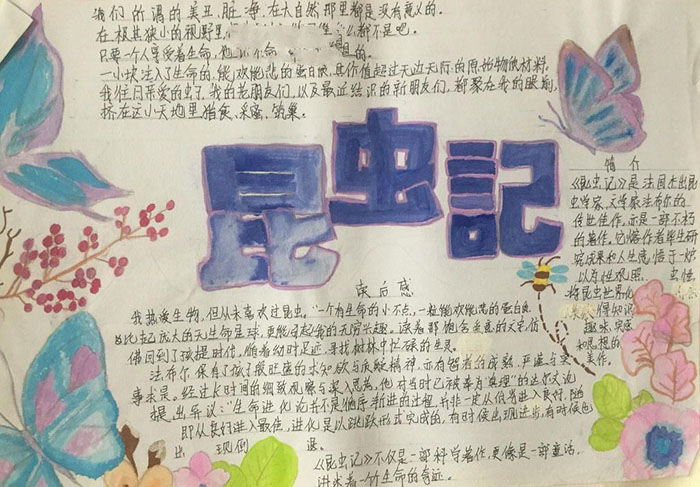 我们所谓的美丑、脏净,在大自然那里都是没有意义的。
在极其狭小的视野里,
都不是吧。
只要一个人享受着生命,他
一小块注入了生命的,能欢能悲的蛋白质,其价值超过无边无际的原始物质材料。
我往日亲爱的虫子,我的老朋友们,以及最近结识的新朋友们,都聚在我的眼前,
挤在这小天地里猎食、采蜜、筑巢。
昆虫記
简介
《昆虫记》是法国杰出昆
虫学家、文学家法布尔的
传世佳作,亦是一部不朽
的著作。它熔作者毕生研
究成果和人生感悟于一炉,
以人性观照
将昆虫世界化
得知识
趣味
和思想的
美作。
读后感
我热爱生物,但从未喜欢过昆虫。"一个有生命的小不点,一粒能欢能悲的蛋白质
比起庞大的无生命星球,更能引起我的无穷兴趣。读着那饱含童真的文字,仿
佛回到了孩提时代,随着幼时足迹,寻找树林中忙碌的生灵。
法布尔保有了孩子般旺盛的求知欲与求疑精神,亦有智者的成熟、严谨与实
事求是。经过长时间的细致观察与深入思考,他对当时已被奉为真理"的达尔文论
提出异议:"生命进化论并不是循序渐进的过程,并非一定从低劣进入良好,随
即从良好进入最佳,进化是以跳跃形式完成的,有时候出现进步,有时候也
出现倒退。
《昆虫记》不仅是一部科学著作,更像是一部童话,
讲述着一个个生命的奇迹。